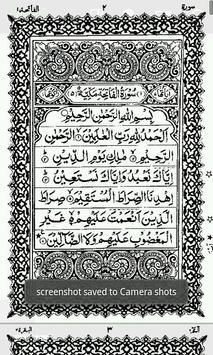 الفاتحة ٢ سورة
سُوْرَةُ الْفَاتِحَةِ مَكِّيَّةٌ
بِسْمِ اللهِ الرَّحْمٰنِ الرَّحِيْمِ
اَلْحَمْدُ لِلّٰهِ رَبِّ الْعٰلَمِيْنَ الرَّحْمٰنِ
الرَّحِيْمِ مٰلِكِ يَوْمِ الدِّيْنِ
اِيَّاكَ نَعْبُدُ وَاِيَّاكَ نَسْتَعِيْنُ
اِهْدِنَا الصِّرَاطَ الْمُسْتَقِيْمَ صِرَاطَ
الَّذِيْنَ اَنْعَمْتَ عَلَيْهِمْ غَيْرِ
الْمَغْضُوْبِ عَلَيْهِمْ وَلَا الضَّآلِّيْنَ
screenshot saved to Camera shots
البقرة ٣ الٓمّٓ